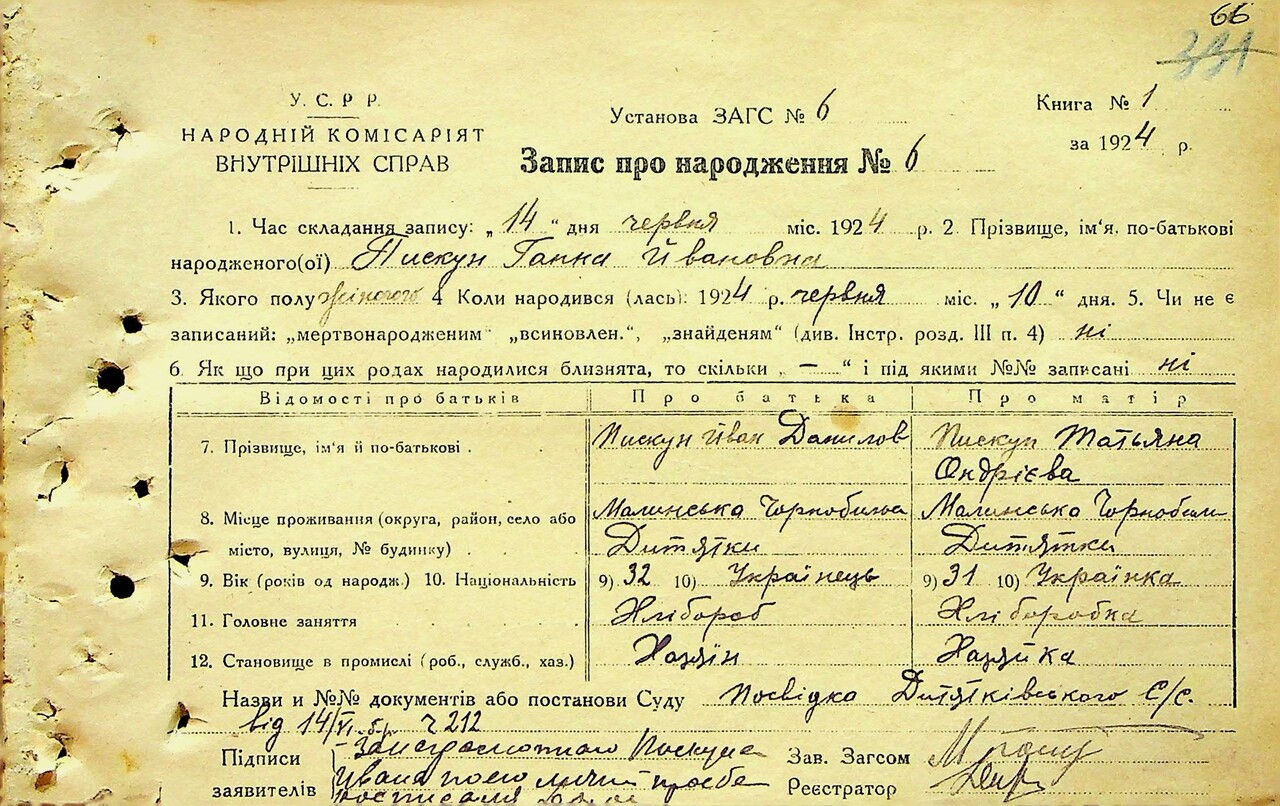 66
331
У. С. Р Р.
НАРОДНІЙ КОМІСАРІЯТ
ВНУТРІШНІХ СПРАВ
Установа ЗАГС № 6
Книга № 1
за 1924 р.
Запис про народження № 6
1. Час складання запису: „14“ дня червня міс. 1924 р. 2. Прізвище, ім'я, по-батькові
народженого(ої) Пискун Ганна Йвановна
3. Якого полу жіночого 4 Коли народився (лась): 1924 р. червня міс. „10“ дня. 5. Чи не є
записаний: „мертвонародженим“ „всиновлен.“, „знайденям“ (див. Інстр. розд. III п. 4) ні
6. Як що при цих родах народилися близнята, то скільки „—“ і під якими №№ записані ні
Відомості про батьків Про батька Про матір
7. Прізвище, ім'я й по-батькові . Пискун Йван Данилов Пискун Татьяна
Ондрієва
8. Місце проживання (округа, район, село або Малинська Чорнобильс Малинська Чорнобиль
місто, вулиця, № будинку) . Дитятки Дитятки
9. Вік (років од народж.) 10. Національність 9) 32 10) Українець 9) 31 10) Українка
11. Головне заняття Хлібороб Хліборобка
12. Становище в промислі (роб., служб., хаз.) Хазяїн Хазяйка
Назви и №№ документів або постанови Суду Посвідка Дитятківського С/с.
від 14/VI б.р. ч 212
Підписи Пискуна Зав. Загсом
заявителів Йвана його личній прозбе Реєстратор